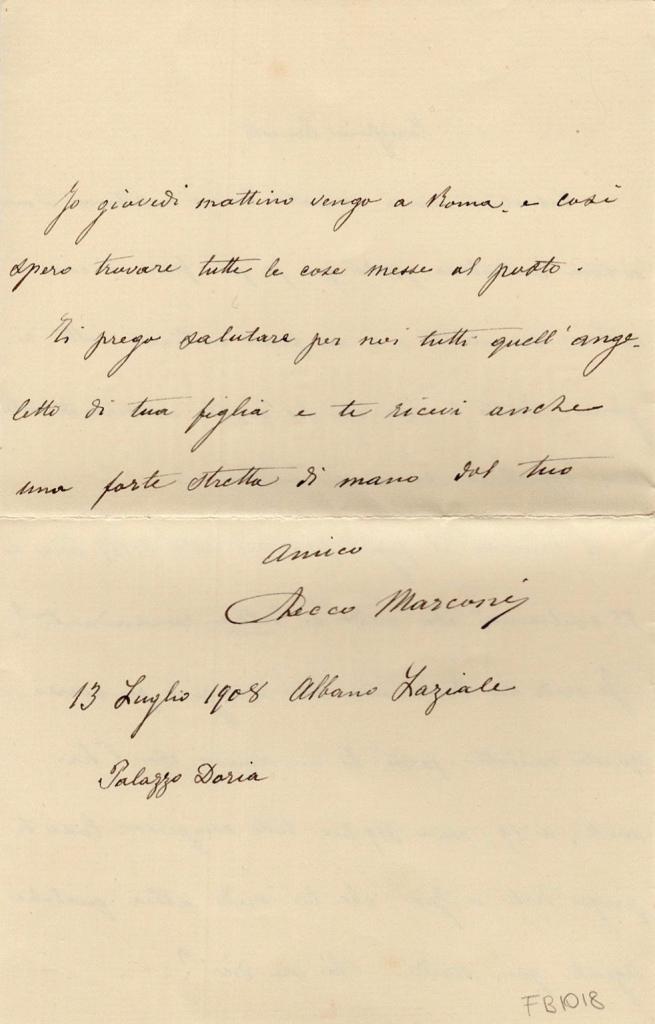 Io giovedi mattino vengo a Roma, e così
spero trovare tutte le cose messe al posto.
Ti prego salutare per noi tutti quell'ange-
letto di tua figlia e te ricevi anche
una forte stretta di mano dal tuo
amico
Checco Marconi
13 Luglio 1908 Albano Laziale
Palazzo Doria
FB1018